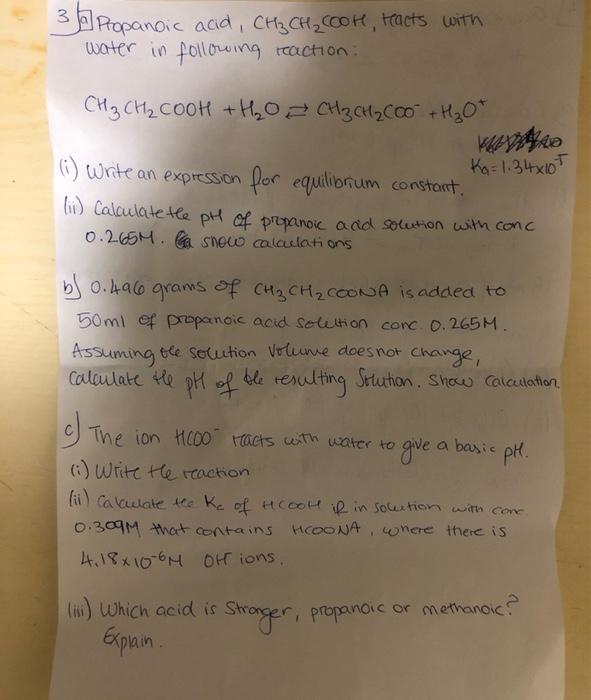 3 a) Propanoic acid, CH3CH2COOH, reacts with
water in following reaction:
CH3CH2COOH + H2O ⇌ CH3CH2COO⁻ + H3O⁺
Ka = 1.34x10⁻⁵
(i) Write an expression for equilibrium constant.
(ii) Calculate the pH of propanoic acid solution with conc
0.265M. show calculations
b) 0.496 grams of CH3CH2COONA is added to
50ml of propanoic acid solution conc. 0.265M.
Assuming the solution volume does not change,
calculate the pH of the resulting Solution. Show calculation.
c) The ion HCOO⁻ reacts with water to give a basic pH.
(i) Write the reaction
(ii) Calculate the Kc of HCOOH if in solution with conc.
0.309M that contains HCOONA, where there is
4.18x10⁻⁶M OH⁻ ions.
(iii) Which acid is Stronger, propanoic or methanoic?
Explain.